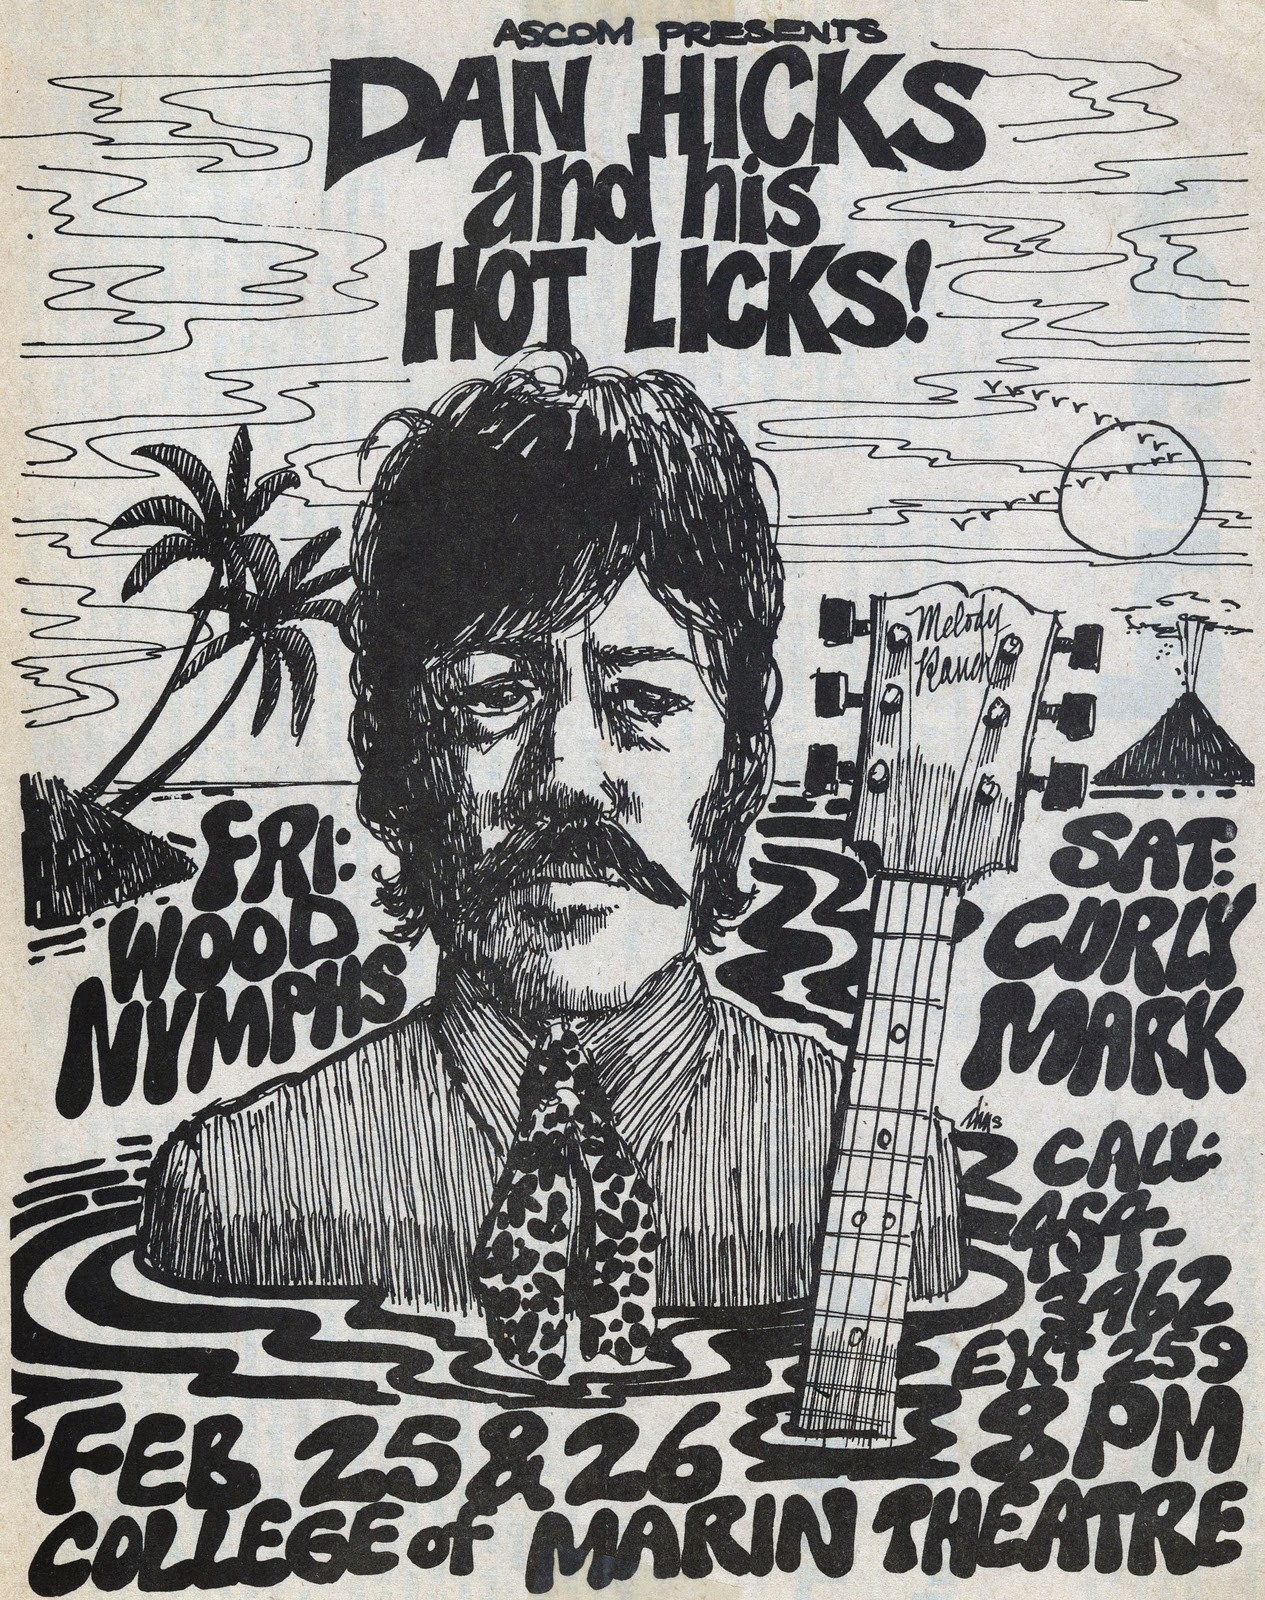 ASCOM PRESENTS
DAN HICKS
and his
HOT LICKS!
Melody
Ranch
FRI:
WOOD
NYMPHS
SAT:
CURLY
MARK
CALL:
454-
3962
EXT 259
8 PM
FEB 25 & 26
COLLEGE of MARIN THEATRE